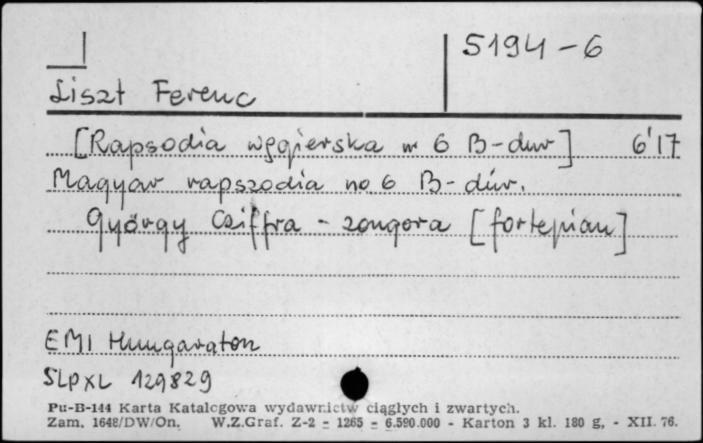 5194-6
Liszt Ferenc
[Rapsodia węgierska nr 6 B-dur] 6'17
Magyar rapszodia no 6 B-dúr.
György Cziffra - zongora [fortepian]
EMI Hungaraton
SLPXL 129829
Pu-B-144 Karta Katalogowa wydawnictw ciągłych i zwartych.
Zam. 1648/DW/On. W.Z.Graf. Z-2 - 1265 - 6.590.000 - Karton 3 kl. 180 g, - XII. 76.